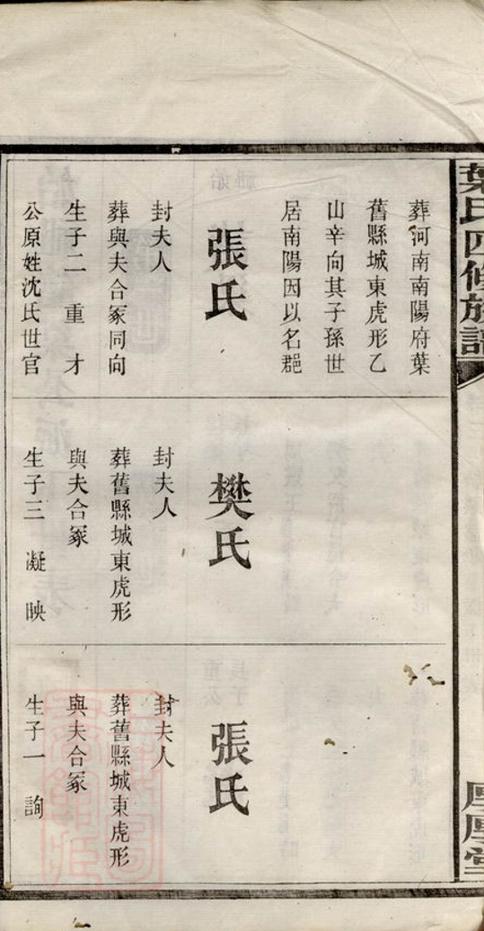 葉氏四修族譜
葬河南南陽府葉
舊縣城東虎形乙
山辛向其子孫世
居南陽因以名郡
張氏
封夫人
葬與夫合冢同向
生子二 重 才
公原姓沈氏世官
樊氏
封夫人
葬舊縣城東虎形
與夫合冢
生子三 凝 映
張氏
封夫人
葬舊縣城東虎形
與夫合冢
生子一 詢
厚堂